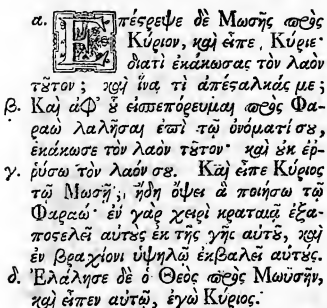 α. Ἐπέςρεψε δὲ Μωσῆς πρὸς
Κύριον, καὶ εἶπε, Κύριε·
διατί ἐκάκωσας τὸν λαὸν
τοῦτον; καὶ ἵνα τί ἀπέςαλκάς με;
β. Καὶ ἀφ᾽ οὗ εἰσπεπόρευμαι πρὸς Φα-
ραὼ λαλῆσαι ἐπὶ τῷ ὀνόματί σου,
ἐκάκωσε τὸν λαὸν τοῦτον· καὶ οὐκ ἐρ-
γ. ρύσω τὸν λαόν σου. Καὶ εἶπε Κύριος
τῷ Μωσῇ, ἤδη ὄψει ἃ ποιήσω τῷ
Φαραώ· ἐν γὰρ χειρὶ κραταιᾷ ἐξα-
ποςελεῖ αὐτοὺς ἐκ τῆς γῆς αὐτοῦ, καὶ
ἐν βραχίονι ὑψηλῷ ἐκβαλεῖ αὐτούς.
δ. Ἐλάλησε δὲ ὁ Θεὸς πρὸς Μωϋσῆν,
καὶ εἶπεν αὐτῷ, ἐγὼ Κύριος·